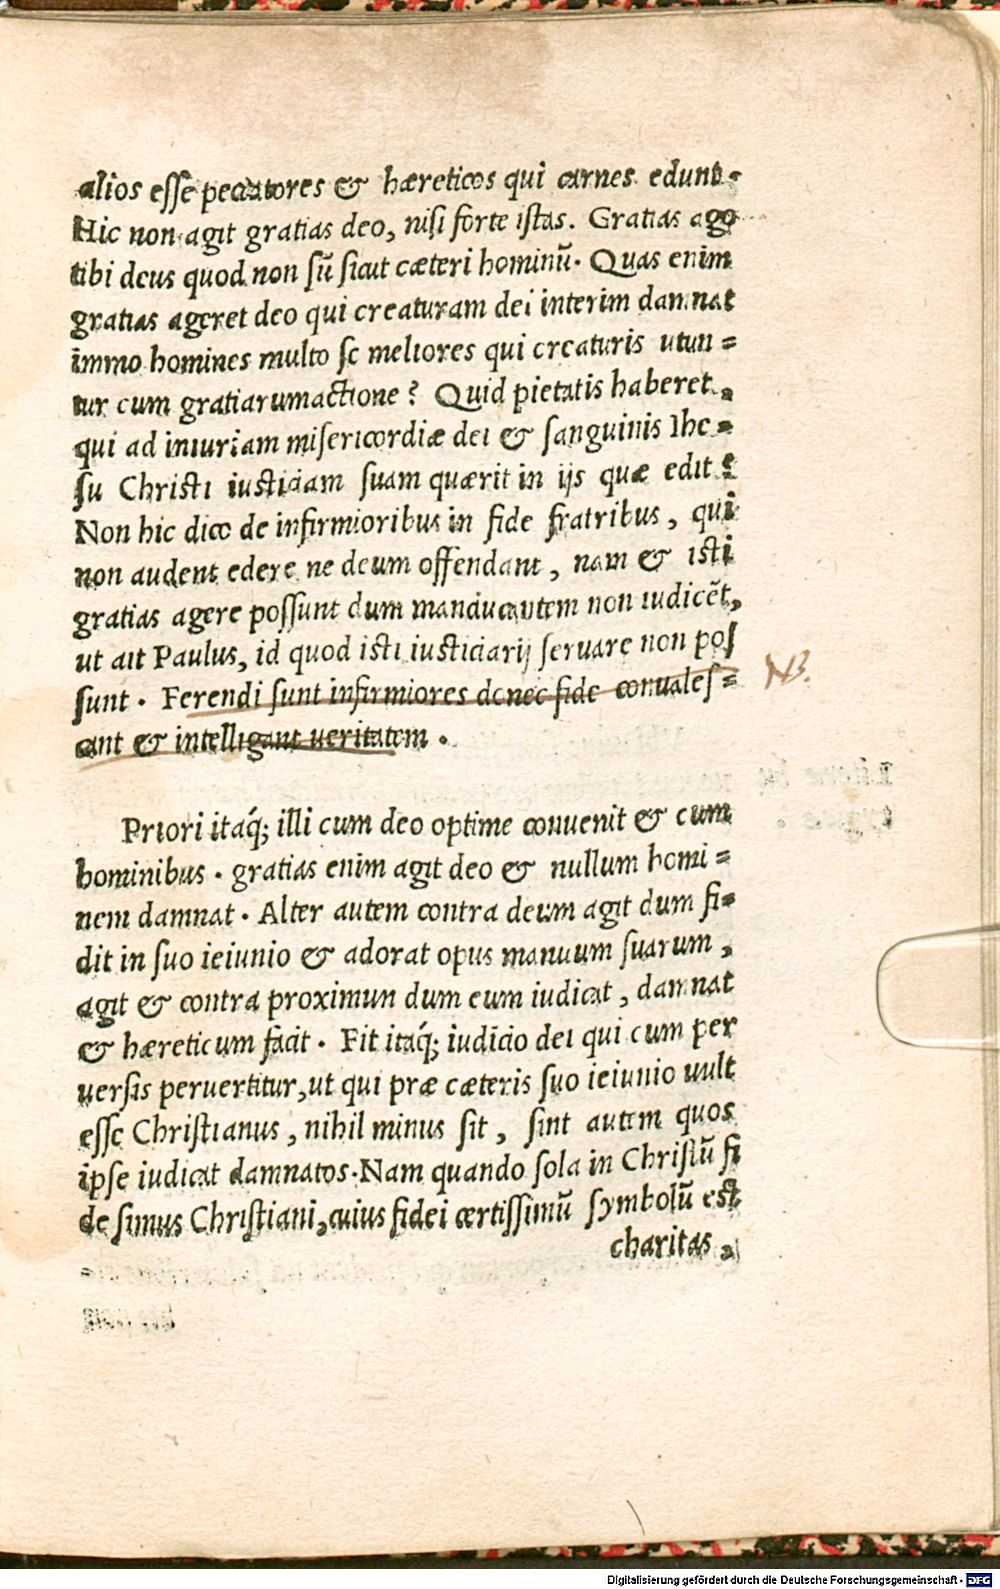 alios esse peccatores & hæreticos qui carnes edunt.
Hic non agit gratias deo, nisi forte istas. Gratias ago
tibi deus quod non sũ sicut cæteri hominũ. Quas enim
gratias ageret deo qui creaturam dei interim damnat
immo homines multo se meliores qui creaturis utun=
tur cum gratiarumactione? Quid pietatis haberet,
qui ad iniuriam misericordiæ dei & sanguinis Ihe=
su Christi iusticiam suam quærit in ijs quæ edit?
Non hic dico de infirmioribus in fide fratribus, qui
non audent edere ne deum offendant, nam & isti
gratias agere possunt dum manducantem non iudicẽt,
ut ait Paulus, id quod isti iusticiarij seruare non pos
sunt. Ferendi sunt infirmiores donec fide conuales=
cant & intelligant veritatem.
NB.
Priori itaq́; illi cum deo optime conuenit & cum
hominibus. gratias enim agit deo & nullum homi=
nem damnat. Alter autem contra deum agit dum fi=
dit in suo ieiunio & adorat opus manuum suarum,
agit & contra proximum dum eum iudicat, damnat
& hæreticum facit. Fit itaq́; iudicio dei qui cum per
uersis peruertitur, ut qui præ cæteris suo ieiunio uult
esse Christianus, nihil minus sit, sint autem quos
ipse iudicat damnatos. Nam quando sola in Christũ fi
de simus Christiani, cuius fidei certissimũ symbolũ est
charitas,
Digitalisierung gefördert durch die Deutsche Forschungsgemeinschaft - DFG